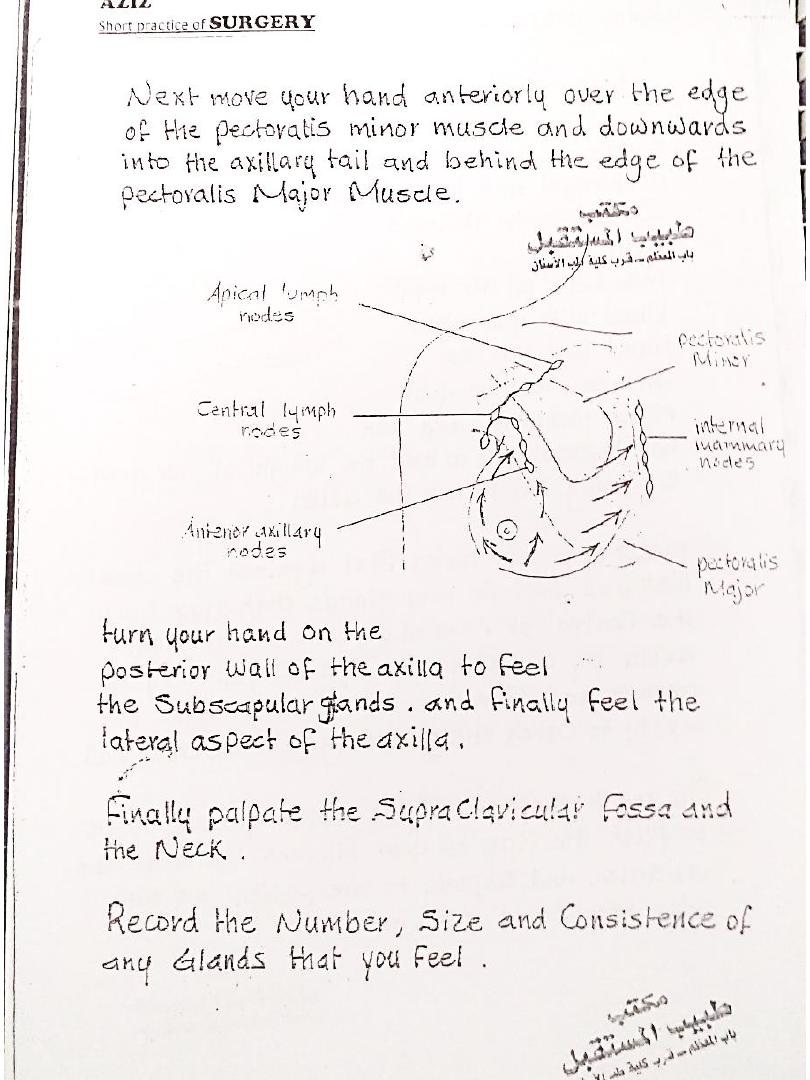 AZIZ
Short practice of SURGERY
Next move your hand anteriorly over the edge
of the pectoralis minor muscle and downwards
into the axillary tail and behind the edge of the
pectoralis Major Muscle.
مكتب
طبيب المستقبل
باب المعظم - قرب كلية طب الأسنان
Apical lymph
nodes
pectoralis
Minor
Central lymph
nodes
internal
mammary
nodes
Anterior axillary
nodes
pectoralis
Major
turn your hand on the
posterior wall of the axilla to feel
the Subscapular glands. and finally feel the
lateral aspect of the axilla.
Finally palpate the SupraClavicular fossa and
the Neck.
Record the Number, Size and Consistence of
any Glands that you feel.
مكتب
طبيب المستقبل
باب المعظم - قرب كلية طب